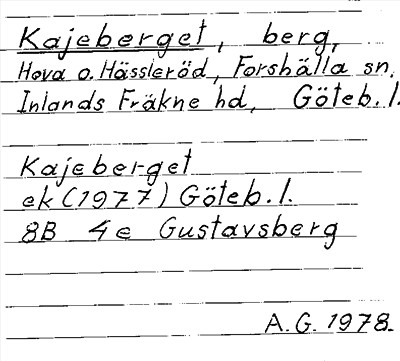 Kajeberget, berg,
Hova o. Hässleröd, Forshälla sn,
Inlands Fräkne hd, Göteb. l.
Kajeberget
ek (1977) Göteb. l.
8B 4e Gustavsberg
A. G. 1978.